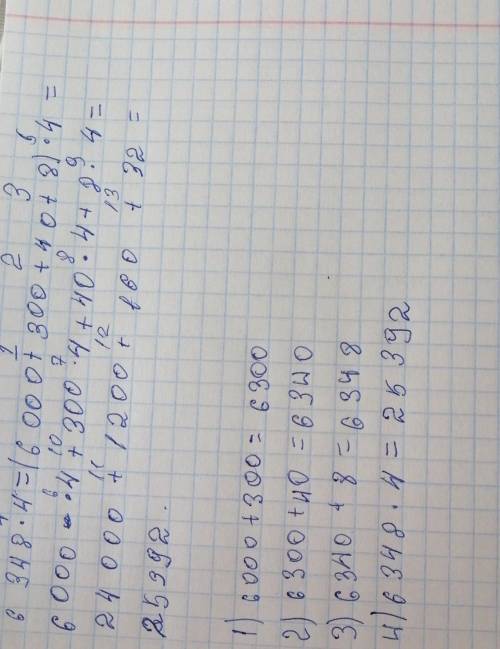 6 348 · 4 = (6 000 + 300 + 40 + 8) · 4 =
6 000 · 4 + 300 · 4 + 40 · 4 + 8 · 4 =
24 000 + 1 200 + 160 + 32 =
25 392.
1) 6000 + 300 = 6300
2) 6300 + 40 = 6340
3) 6340 + 8 = 6348
4) 6348 · 4 = 25 392